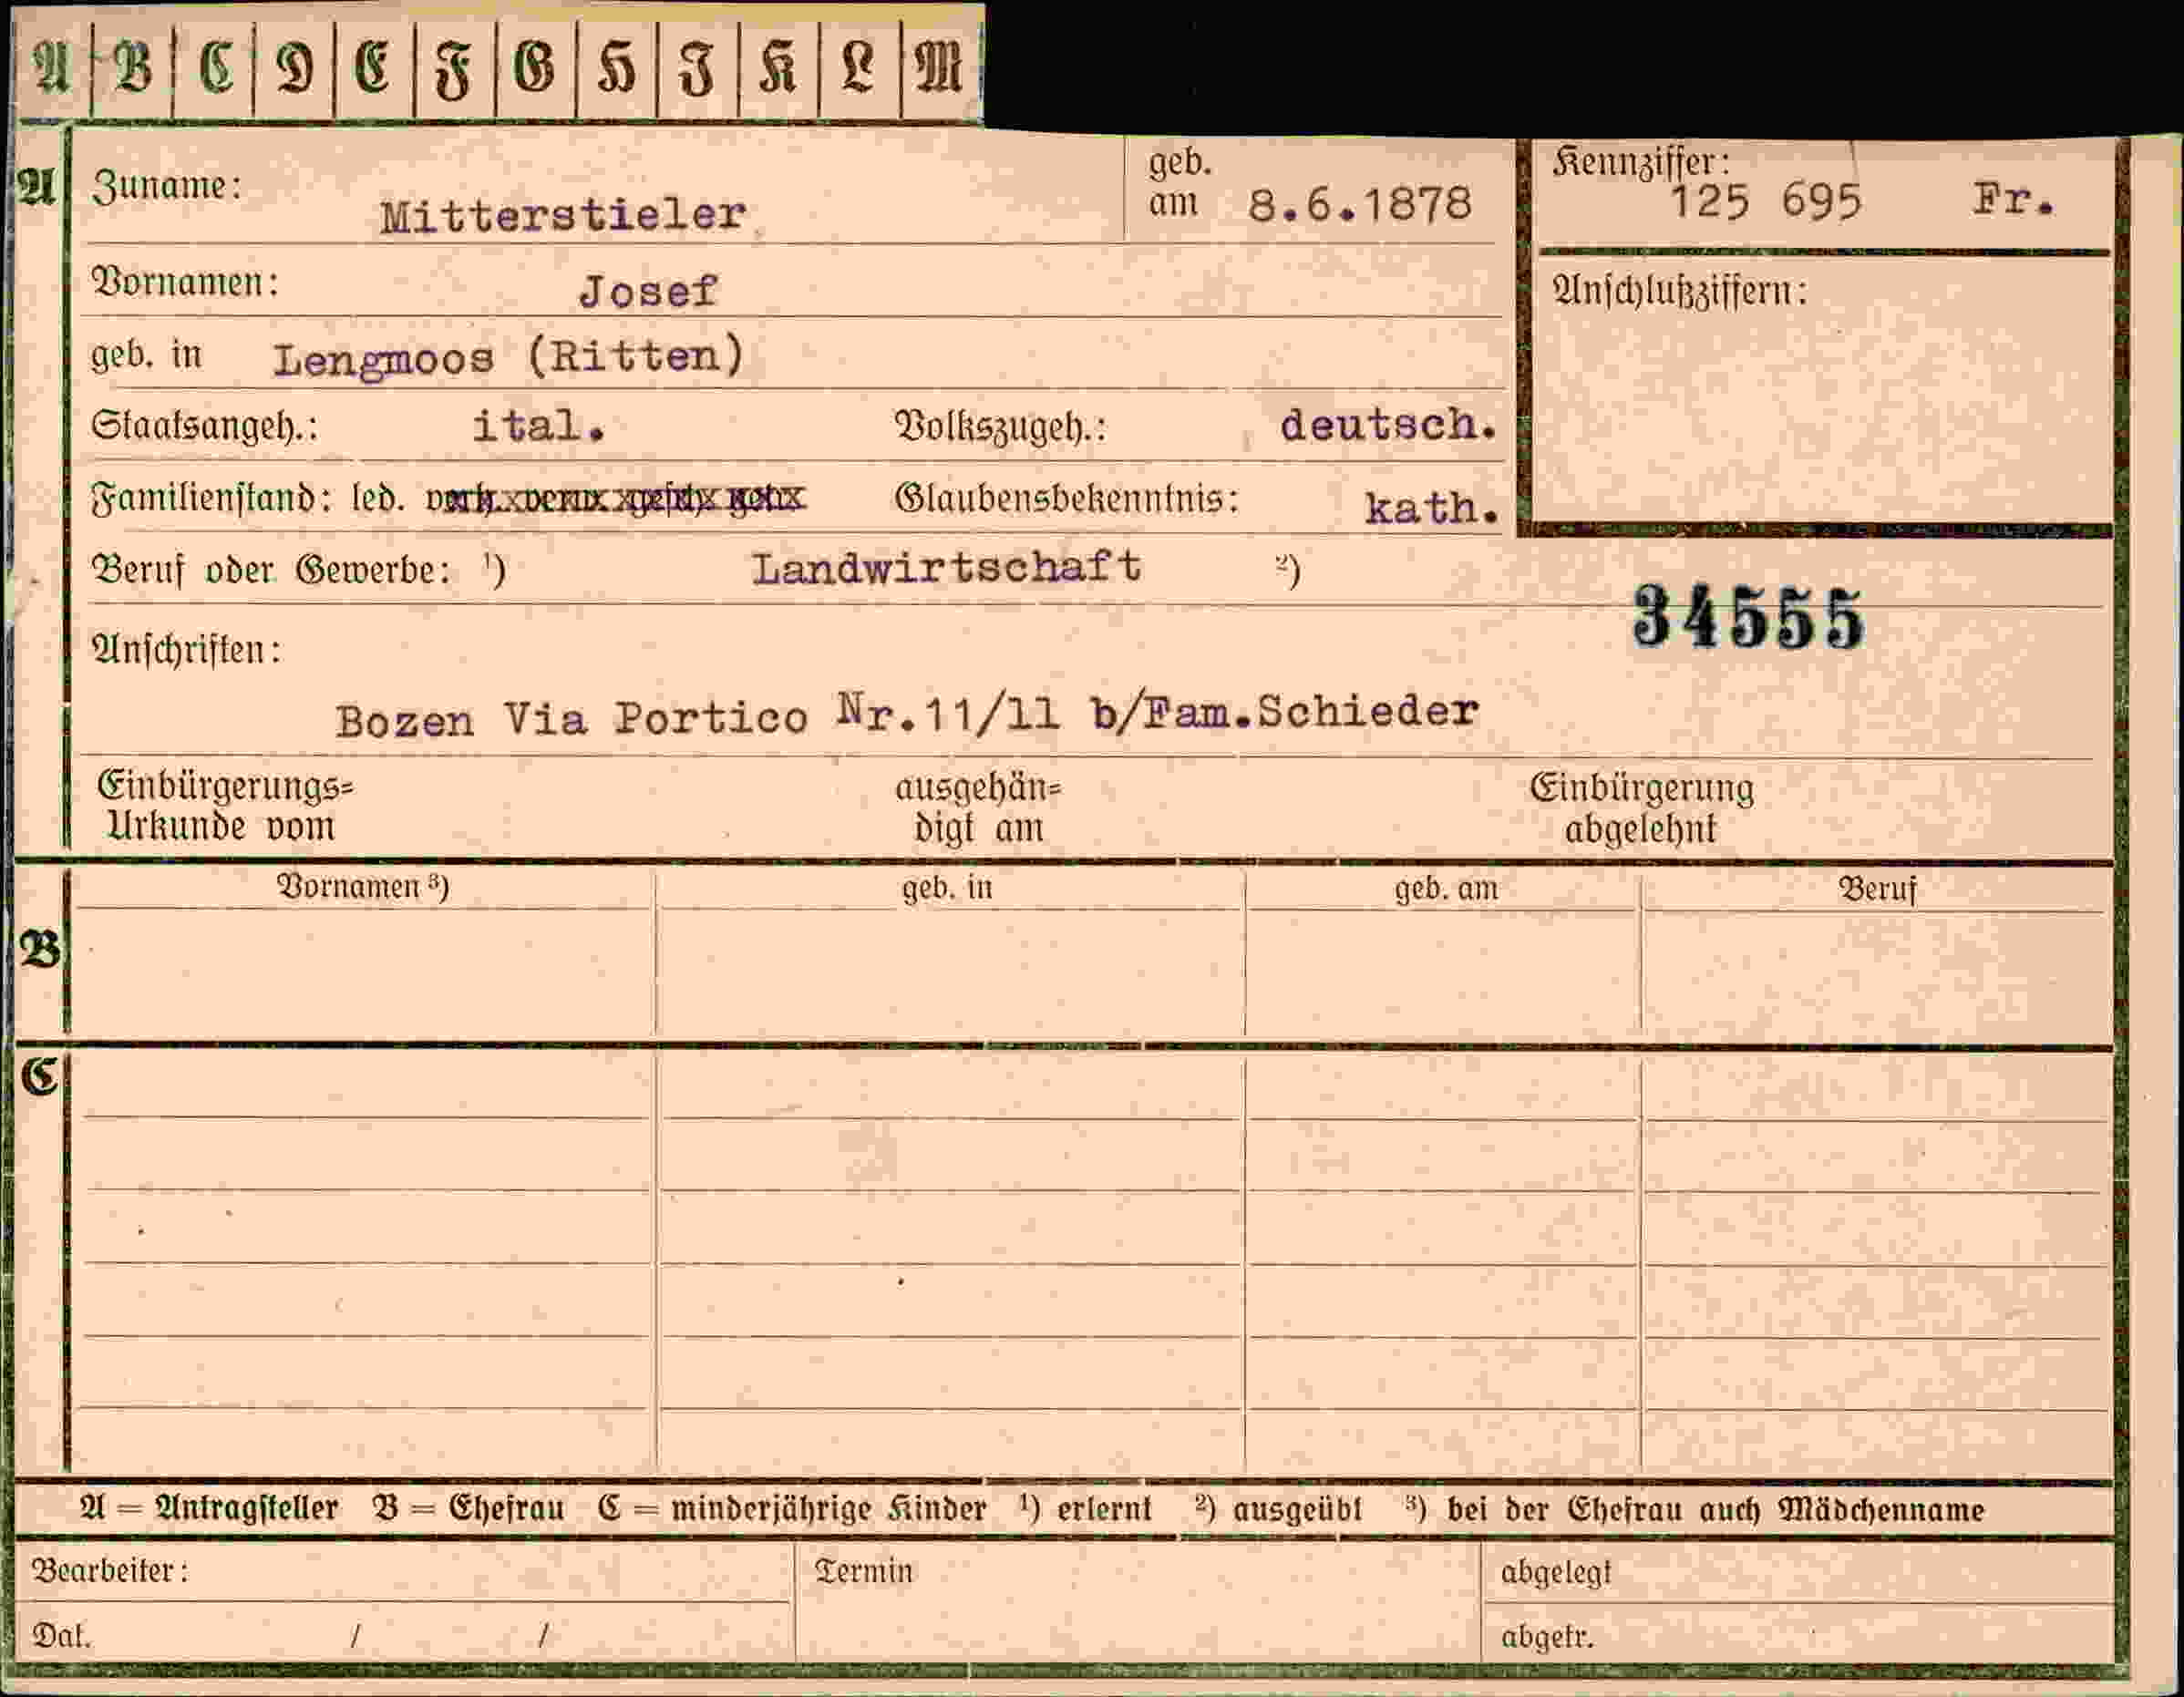 A B C D E F G H J K L M
A Zuname: Mitterstieler geb. am 8.6.1878 Kennziffer: 125 695 Fr.
Vornamen: Josef Anschlußziffern:
geb. in Lengmoos (Ritten)
Staatsangeh.: ital. Volkszugeh.: deutsch.
Familienstand: led. Glaubensbekenntnis: kath.
Beruf oder Gewerbe: ¹) Landwirtschaft ²)
34555
Anschriften:
Bozen Via Portico Nr.11/11 b/Fam.Schieder
Einbürgerungs= ausgehän= Einbürgerung
Urkunde vom digt am abgelehnt
Vornamen ³) geb. in geb. am Beruf
B
C
A = Antragsteller B = Ehefrau C = minderjährige Kinder ¹) erlernt ²) ausgeübt ³) bei der Ehefrau auch Mädchenname
Bearbeiter: Termin abgelegt
Dat. / / abgetr.